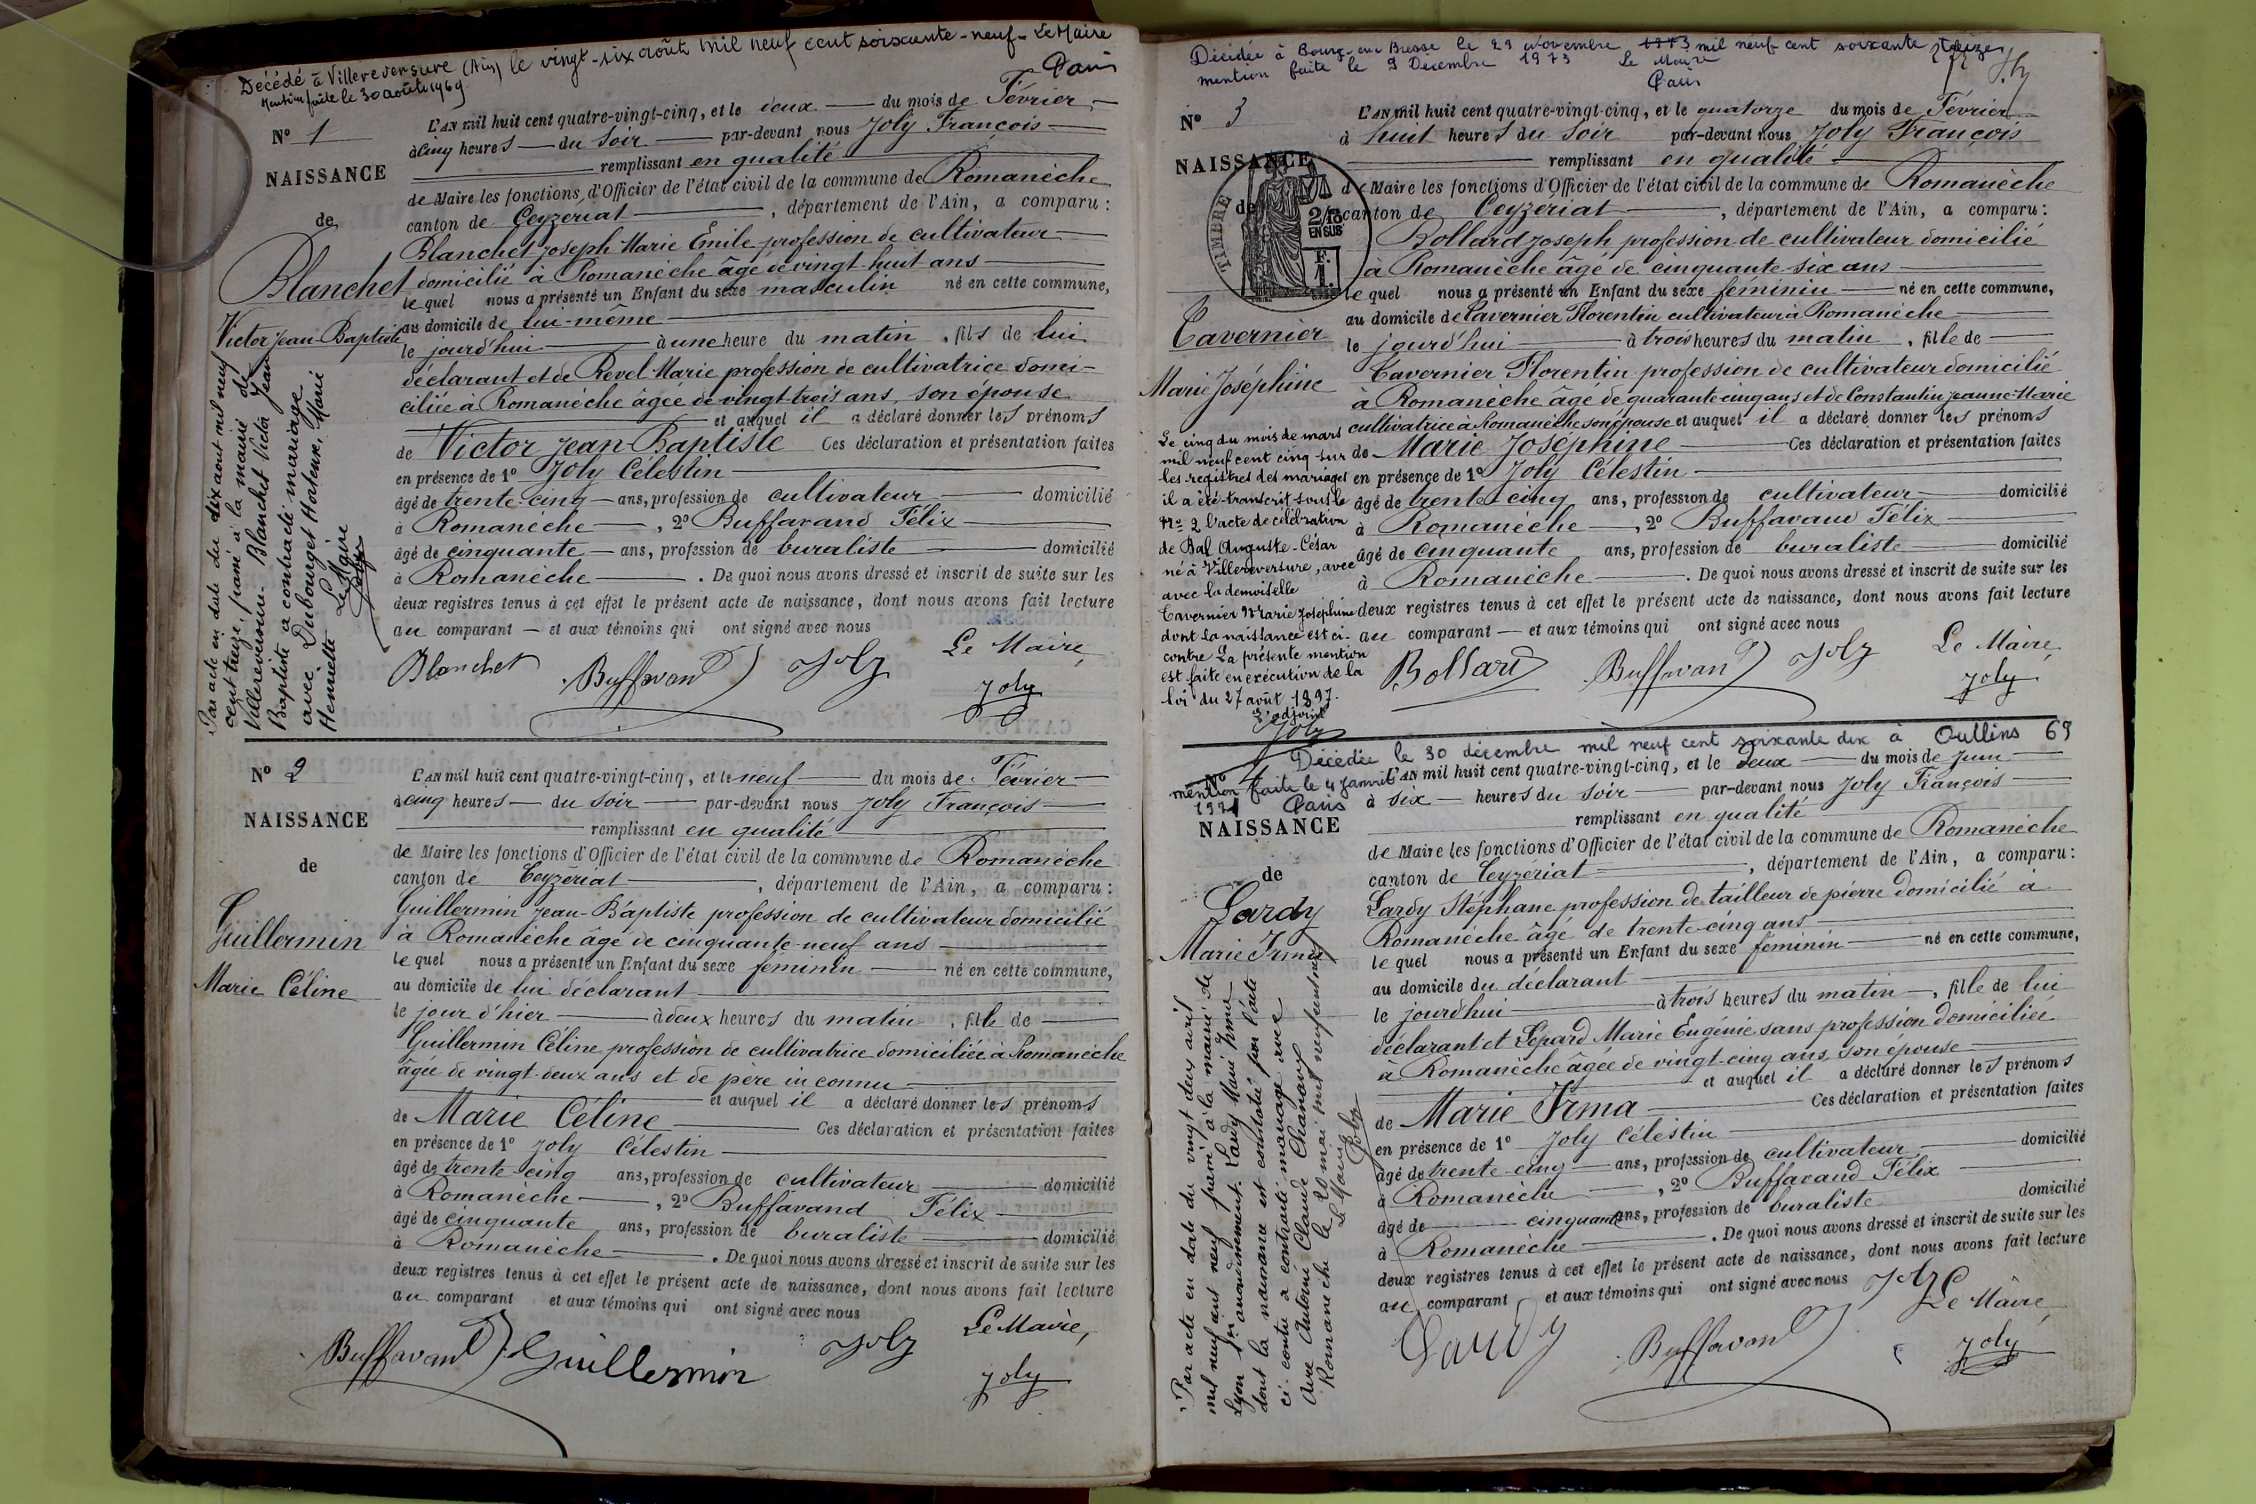 Décédé à Villereversure (Ain) le vingt-six août mil neuf cent soixante-neuf - Le Maire
Mention faite le 30 août 1969
Paris
N° 1
NAISSANCE
de
Blanchet
Victor Jean-Baptiste
L'AN mil huit cent quatre-vingt-cinq, et le deux du mois de Février
à cinq heures du soir par-devant nous Joly François
remplissant en qualité
de Maire les fonctions d'Officier de l'état civil de la commune de Romanèche
canton de Ceyzériat, département de l'Ain, a comparu :
Blanchet Joseph Marie Emile profession de cultivateur
domicilié à Romanèche âgé de vingt-huit ans
lequel nous a présenté un Enfant du sexe masculin né en cette commune,
au domicile de lui-même
le jourd'hui à une heure du matin, fils de lui
déclarant et de Revel Marie profession de cultivatrice domi-
ciliée à Romanèche âgée de vingt-trois ans, son épouse
et auquel il a déclaré donner les prénoms
de Victor Jean Baptiste Ces déclaration et présentation faites
en présence de 1° Joly Célestin
âgé de trente-cinq ans, profession de cultivateur domicilié
à Romanèche, 2° Buffavand Félix
âgé de cinquante ans, profession de buraliste domicilié
à Romanèche. De quoi nous avons dressé et inscrit de suite sur les
deux registres tenus à cet effet le présent acte de naissance, dont nous avons fait lecture
au comparant et aux témoins qui ont signé avec nous
Le Maire,
Blanchet Buffavand Joly
Joly
Par acte en date du dix août mil neuf
cent treize, passé à la mairie de
Villereversure. Blanchet Victor Jean
Baptiste a contracté mariage
avec Dubourget Hortense, Marie
Henriette Le Maire
Joly
N° 2
NAISSANCE
de
Guillermin
Marie Céline
L'AN mil huit cent quatre-vingt-cinq, et le neuf du mois de Février
à cinq heures du soir par-devant nous Joly François
remplissant en qualité
de Maire les fonctions d'Officier de l'état civil de la commune de Romanèche
canton de Ceyzériat, département de l'Ain, a comparu :
Guillermin Jean-Baptiste profession de cultivateur domicilié
à Romanèche âgé de cinquante-neuf ans
lequel nous a présenté un Enfant du sexe féminin né en cette commune,
au domicile de lui déclarant
le jour d'hier à deux heures du matin, fille de
Guillermin Céline profession de cultivatrice domiciliée à Romanèche
âgée de vingt-deux ans et de père inconnu
et auquel il a déclaré donner les prénoms
de Marie Céline Ces déclaration et présentation faites
en présence de 1° Joly Célestin
âgé de trente-cinq ans, profession de cultivateur domicilié
à Romanèche, 2° Buffavand Félix
âgé de cinquante ans, profession de buraliste domicilié
à Romanèche. De quoi nous avons dressé et inscrit de suite sur les
deux registres tenus à cet effet le présent acte de naissance, dont nous avons fait lecture
au comparant et aux témoins qui ont signé avec nous
Le Maire,
Buffavand Guillermin Joly
Joly
Décédée à Bourg-en-Bresse le 29 Novembre 1973 mil neuf cent soixante treize
mention faite le 9 Décembre 1973 Le Maire
Paris
N° 3
NAISSANCE
de
TIMBRE
2/10
EN SUS
F.
1.
Tavernier
Marie Joséphine
L'AN mil huit cent quatre-vingt-cinq, et le quatorze du mois de Février
à huit heures du soir par-devant nous Joly François
remplissant en qualité
de Maire les fonctions d'Officier de l'état civil de la commune de Romanèche
canton de Ceyzériat, département de l'Ain, a comparu :
Bollard Joseph profession de cultivateur domicilié
à Romanèche âgé de cinquante-six ans
lequel nous a présenté un Enfant du sexe féminin né en cette commune,
au domicile de Tavernier Florentin cultivateur à Romanèche
le jourd'hui à trois heures du matin, fille de
Tavernier Florentin profession de cultivateur domicilié
à Romanèche âgé de quarante-cinq ans et de Constantin Jeanne-Marie
cultivatrice à Romanèche son épouse et auquel il a déclaré donner les prénoms
de Marie Joséphine Ces déclaration et présentation faites
en présence de 1° Joly Célestin
âgé de trente-cinq ans, profession de cultivateur domicilié
à Romanèche, 2° Buffavand Félix
âgé de cinquante ans, profession de buraliste domicilié
à Romanèche. De quoi nous avons dressé et inscrit de suite sur les
deux registres tenus à cet effet le présent acte de naissance, dont nous avons fait lecture
au comparant et aux témoins qui ont signé avec nous
Le Maire,
Bollard Buffavand Joly
Joly
Le cinq du mois de mars
mil neuf cent cinq sur
les registres des mariages
il a été transcrit sous le
N° 2 l'acte de célébration
de Bal Auguste-César
né à Villereversure, avec
avec la demoiselle
Tavernier Marie Joséphine
dont la naissance est ci-
contre La présente mention
est faite en exécution de la
loi du 27 août 1897.
L'adjoint
Joly
Décédée le 30 décembre mil neuf cent soixante dix à Oullins 69
mention faite le 4 Janvier
1971 Paris
N° 4
NAISSANCE
de
Lardy
Marie Irma
L'AN mil huit cent quatre-vingt-cinq, et le deux du mois de Juin
à six heures du soir par-devant nous Joly François
remplissant en qualité
de Maire les fonctions d'Officier de l'état civil de la commune de Romanèche
canton de Ceyzériat, département de l'Ain, a comparu :
Lardy Stéphane profession de tailleur de pierre domicilié à
Romanèche âgé de trente-cinq ans
lequel nous a présenté un Enfant du sexe féminin né en cette commune,
au domicile du déclarant
le jourd'hui à trois heures du matin, fille de lui
déclarant et Lépard Marie Eugénie sans profession domiciliée
à Romanèche âgée de vingt-cinq ans, son épouse
et auquel il a déclaré donner les prénoms
de Marie Irma Ces déclaration et présentation faites
en présence de 1° Joly Célestin
âgé de trente-cinq ans, profession de cultivateur domicilié
à Romanèche, 2° Buffavand Félix
âgé de cinquante ans, profession de buraliste domicilié
à Romanèche. De quoi nous avons dressé et inscrit de suite sur les
deux registres tenus à cet effet le présent acte de naissance, dont nous avons fait lecture
au comparant et aux témoins qui ont signé avec nous Joly
Le Maire,
Lardy Buffavand
Joly
Par acte en date du vingt deux avril
mil neuf cent neuf passé à la mairie de
Lyon arrondissement. Lardy Marie Irma
dont la naissance est constatée par l'acte
ci-contre a contracté mariage avec
Claude Chanaux
Romanèche le 20 mai mil neuf cent neuf
Le Maire Joly